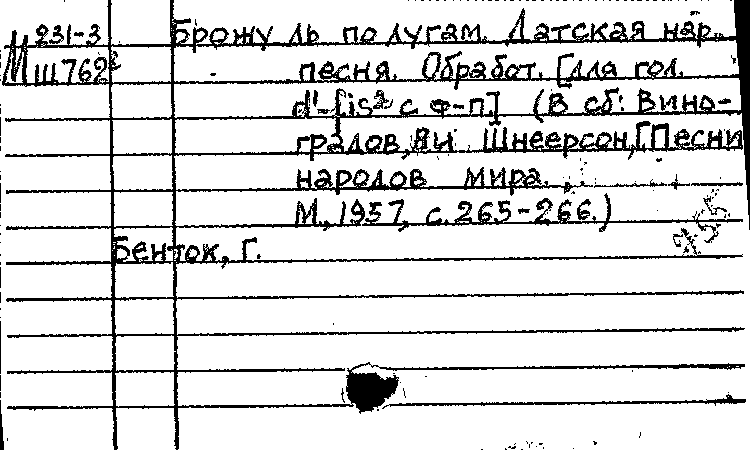 231-3 Брожу ль по лугам. Датская нар.
М Ш762² песня. Обработ. [для гол.
d'-fis² с ф-п.] (В сб: Вино-
градов, и Шнеерсон, [Песни
народов мира.
М., 1957, с. 265-266.)
Бенток, Г.